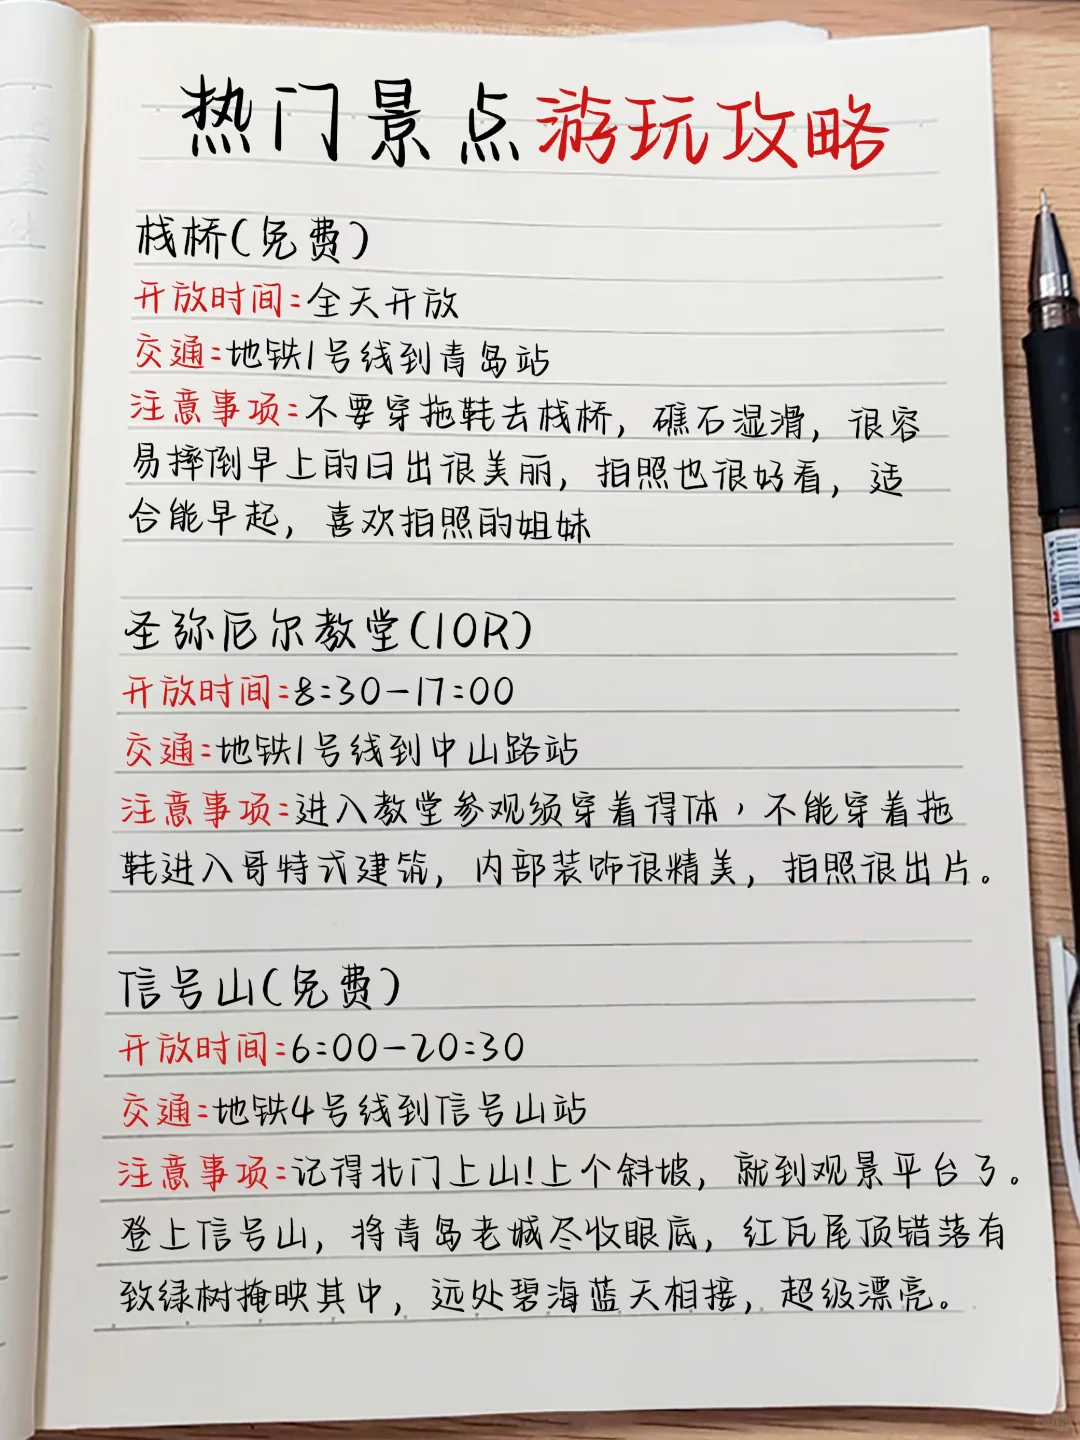 热门景点游玩攻略
栈桥(免费)
开放时间:全天开放
交通:地铁1号线到青岛站
注意事项:不要穿拖鞋去栈桥，礁石湿滑，很容
易摔倒早上的日出很美丽，拍照也很好看，适
合能早起，喜欢拍照的姐妹
圣弥厄尔教堂(10R)
开放时间:8:30-17:00
交通:地铁1号线到中山路站
注意事项:进入教堂参观须穿着得体，不能穿着拖
鞋进入哥特式建筑，内部装饰很精美，拍照很出片。
信号山(免费)
开放时间:6:00-20:30
交通:地铁4号线到信号山站
注意事项:记得北门上山!上个斜坡，就到观景平台了。
登上信号山，将青岛老城尽收眼底，红瓦尾顶错落有
致绿树掩映其中，远处碧海蓝天相接，超级漂亮。